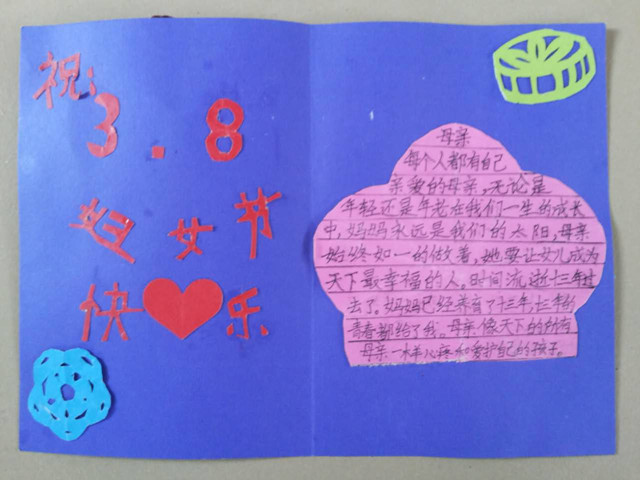 祝:
3.8
妇女节
快乐
母亲
每个人都有自己
亲爱的母亲,无论是
年轻还是年老在我们一生的成长
中,妈妈永远是我们的太阳,母亲
始终如一的做着,她要让女儿成为
天下最幸福的人。时间流逝十三年过
去了。妈妈已经养育了十三年,十三年的
青春都给了我。母亲像天下的所有
母亲一样心疼和爱护自己的孩子。